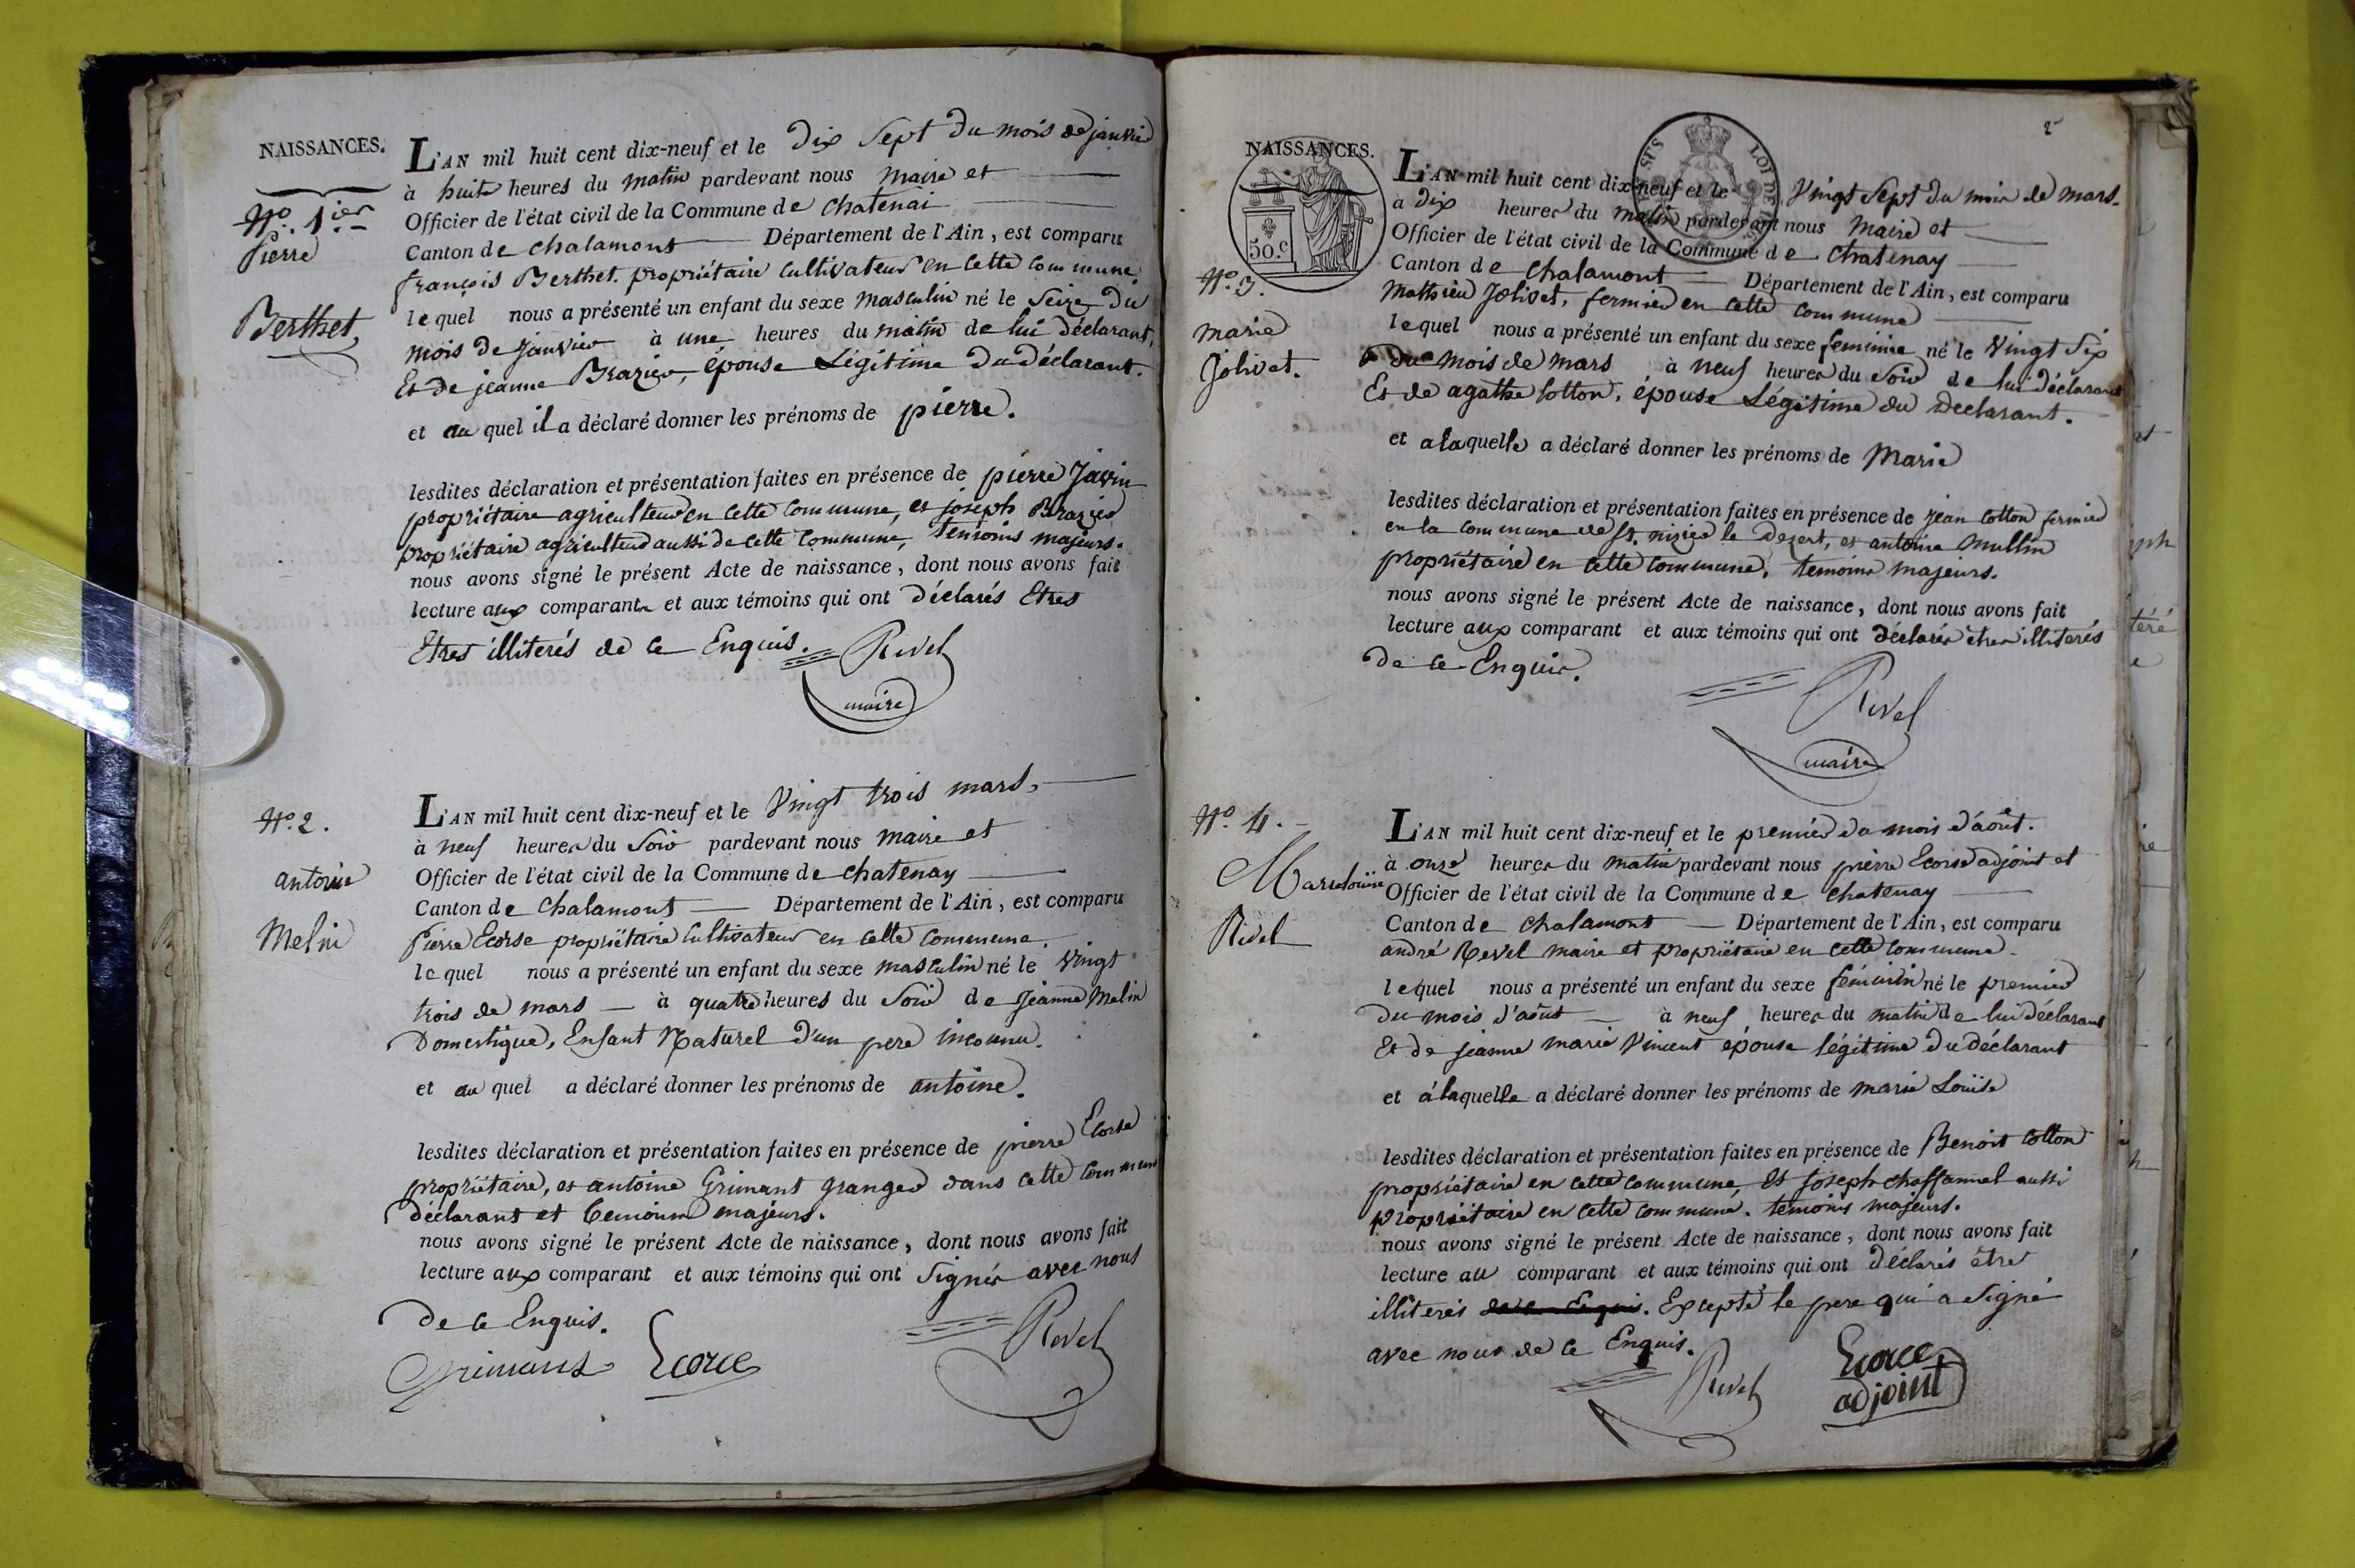 NAISSANCES.
N.º 1.ier
Pierre
Berthet
L'AN mil huit cent dix-neuf et le Dix Sept Du mois de janvier
à huit heures du matin pardevant nous maire et
Officier de l'état civil de la Commune de Chatenai
Canton de Chalamont Département de l'Ain, est comparu
françois Berthet. propriétaire Cultivateur en Cette commune
lequel nous a présenté un enfant du sexe masculin né le Seize Du
mois de janvier à une heures du matin de lui déclarant,
Et de jeanne Brazier, épouse Légitime Du Déclarant.
et au quel il a déclaré donner les prénoms de pierre.
lesdites déclaration et présentation faites en présence de pierre
propriétaire agriculteur en Cette Commune, et joseph Brazier
propriétaire agriculteur aussi de cette Commune, temoins majeurs.
nous avons signé le présent Acte de naissance, dont nous avons fait
lecture aux comparants et aux témoins qui ont Déclarés Etres
Etres illiterés de ce Enquis. Revel
maire
N.º 2.
antoine
Melin
L'AN mil huit cent dix-neuf et le Vingt trois mars,
à neuf heures du Soir pardevant nous maire et
Officier de l'état civil de la Commune de Chatenay
Canton de Chalamont Département de l'Ain, est comparu
Pierre Ecorse propriétaire Cultivateur en cette Commune.
lequel nous a présenté un enfant du sexe masculin né le Vingt
trois de mars à quatre heures du Soir de Jeanne Melin
Domestique, Enfant Naturel D'un pere inconnu.
et au quel a déclaré donner les prénoms de antoine.
lesdites déclaration et présentation faites en présence de pierre Ecorse
propriétaire, et antoine Grimant granger dans Cette Commune
déclarant et temoins majeurs.
nous avons signé le présent Acte de naissance, dont nous avons fait
lecture aux comparant et aux témoins qui ont Signés avec nous
De ce Enquis.
Grimant Ecorce Revel
2
NAISSANCES.
50.c
LOI DE
N.º 3.
marie
Jolivet.
L'AN mil huit cent dix-neuf et le Vingt Sept Du mois de mars.
à Dix heures du matin pardevant nous maire et
Officier de l'état civil de la Commune de Chatenay
Canton de Chalamont Département de l'Ain, est comparu
Mathieu Jolivet, fermier en cette Commune
lequel nous a présenté un enfant du sexe feminin né le Vingt Six
Du mois de mars à neuf heures du Soir de lui Déclarant
Et de agathe Cotton, épouse Légitime du Declarant.
et a laquelle a déclaré donner les prénoms de Marie
lesdites déclaration et présentation faites en présence de jean Cotton fermier
en la Commune de St. nizier le Dezert, et antoine Mullin
propriétaire en Cette Commune, temoins majeurs.
nous avons signé le présent Acte de naissance, dont nous avons fait
lecture aux comparant et aux témoins qui ont Déclarés etres illiterés
De ce Enquis.
Revel
maire
N.º 4.
Marielouise
Revel
L'AN mil huit cent dix-neuf et le premier du mois d'août.
à onze heures du matin pardevant nous pierre Ecorse adjoint et
Officier de l'état civil de la Commune de Chatenay
Canton de Chalamont Département de l'Ain, est comparu
andré Revel maire et propriétaire en cette Commune
lequel nous a présenté un enfant du sexe féminin né le premier
Du mois d'août à neuf heures du matin de lui déclarant
Et de jeanne marie Vincent épouse légitime Du déclarant
et à laquelle a déclaré donner les prénoms de marie Louïse
lesdites déclaration et présentation faites en présence de Benoit Cotton
propriétaire en cette Commune, Et Joseph Chaffannel aussi
propriétaire en Cette Commune. temoins majeurs.
nous avons signé le présent Acte de naissance, dont nous avons fait
lecture au comparant et aux témoins qui ont Déclarés être
illiterés de ce Enquis. Excepté le pere qui a Signé
avec nous de ce Enquis.
Revel Ecorce
adjoint